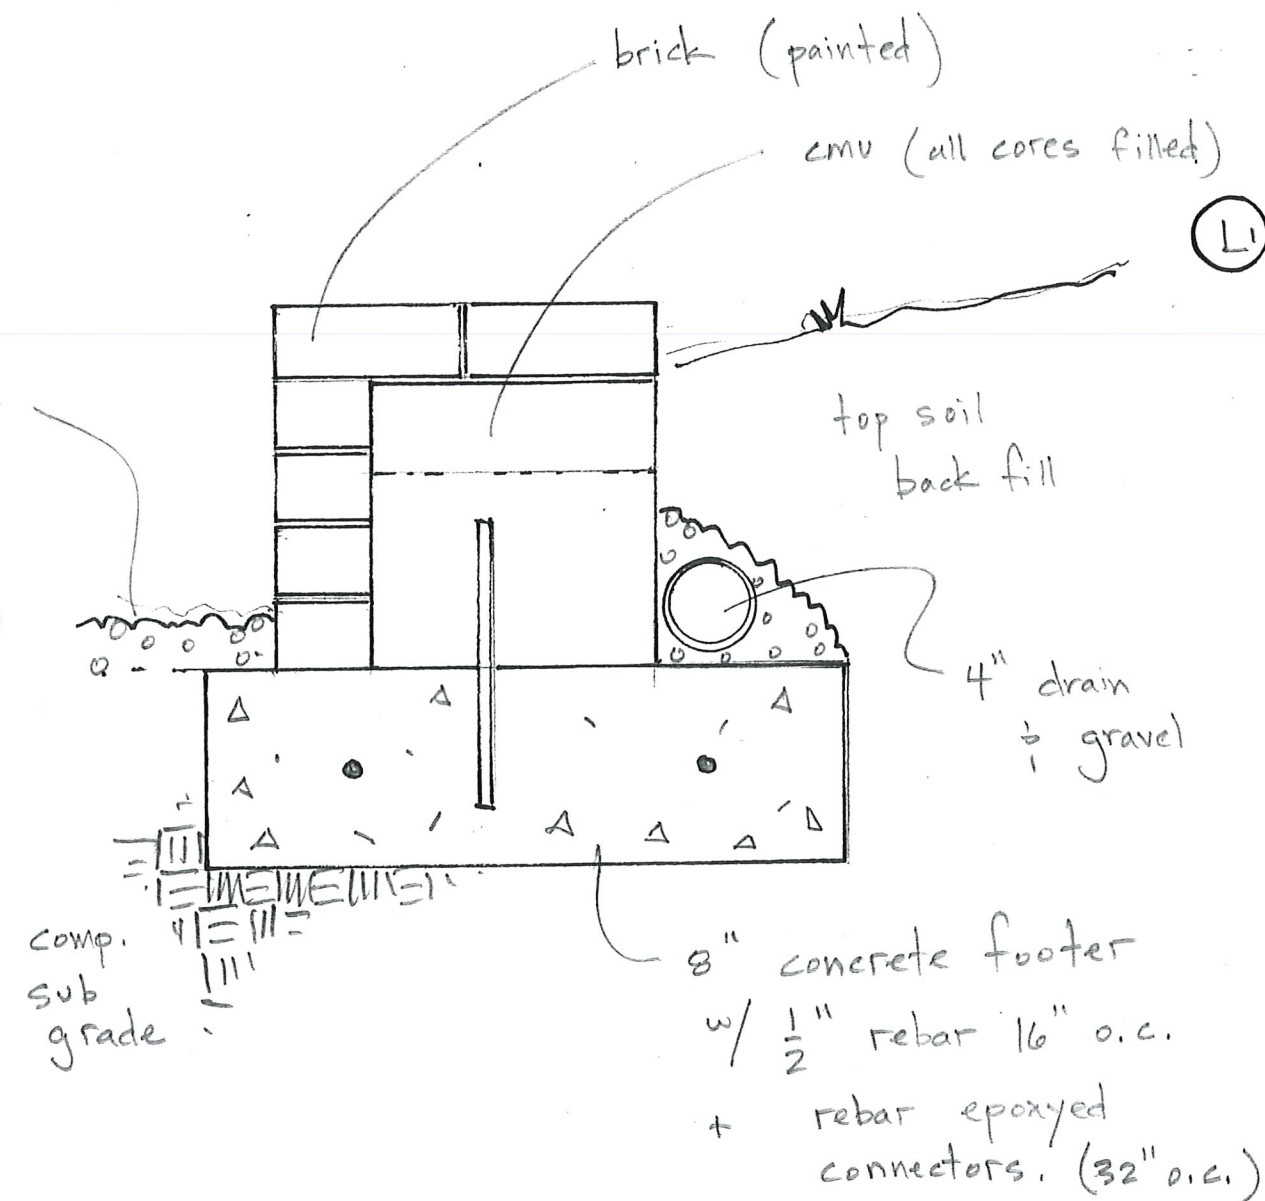 brick (painted)
cmu (all cores filled)
L1
top soil
back fill
4" drain
& gravel
comp.
sub
grade
8" concrete footer
w/ 1/2" rebar 16" o.c.
+ rebar epoxyed
connectors. (32" o.c.)